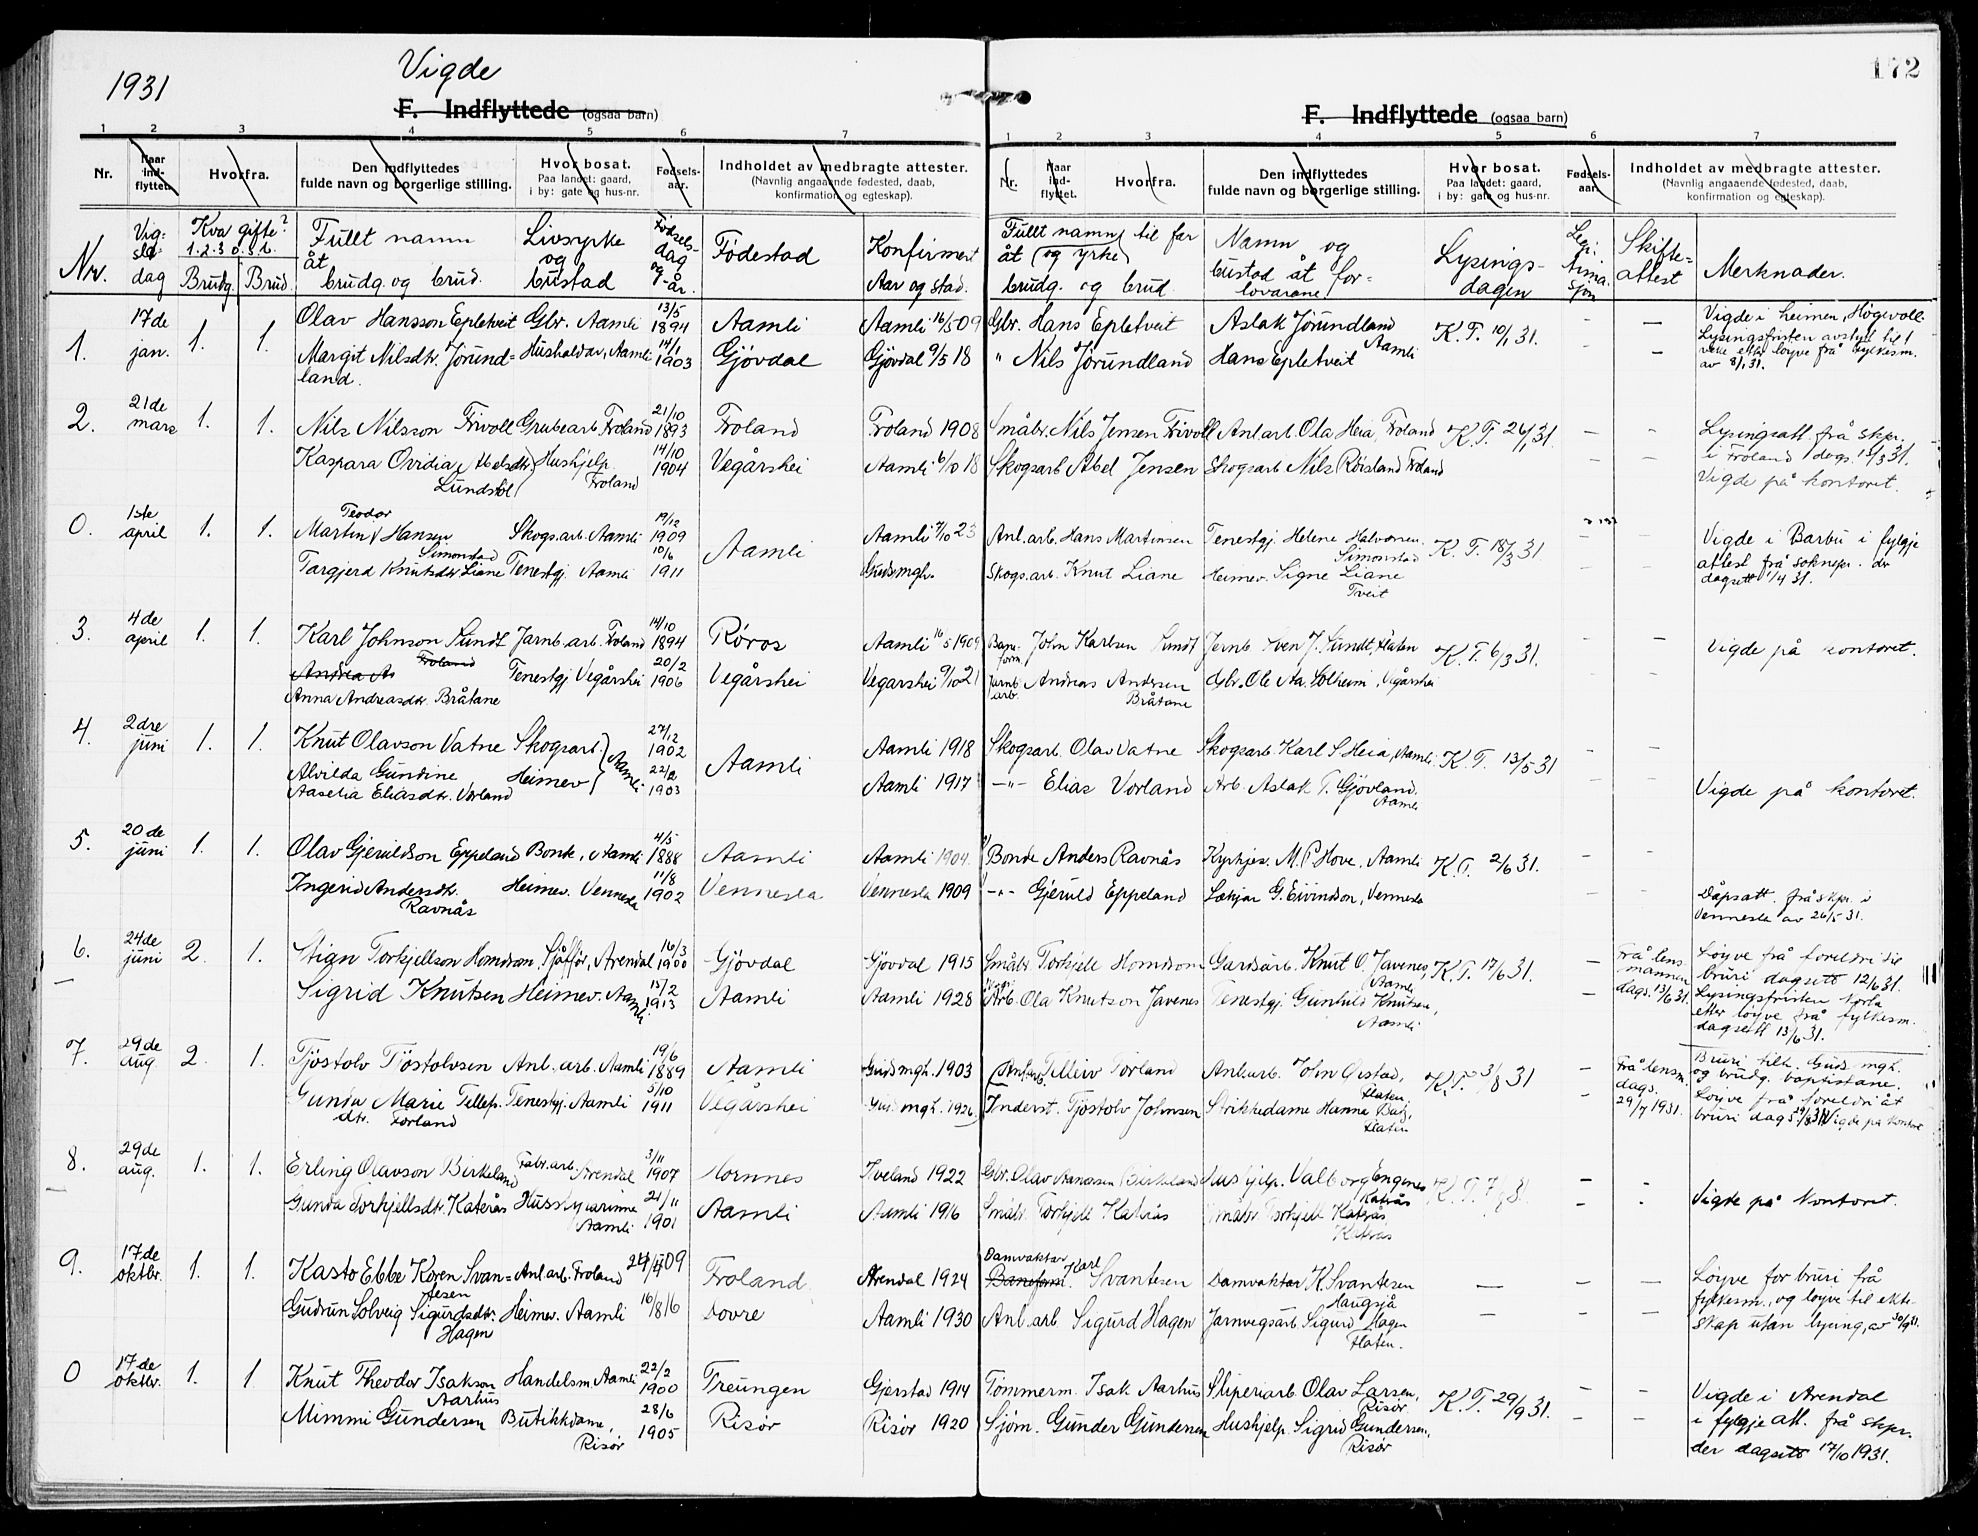 1931
Vigde
172
F. Indflyttede (ogsaa barn)
F. Indflyttede (ogsaa barn)
1 2 3 4 5 6 7
1 2 3 4 5 6 7
Nr. Naar ind-flyttet. Hvorfra. Den indflyttedes fulde navn og borgerlige stilling. Hvor bosat. Paa landet: gaard, i by: gate og hus-nr. Fødsels-aar. Indholdet av medbragte attester. (Navnlig angaaende fødested, daab, konfirmation og egteskap).
Nr. Naar ind-flyttet. Hvorfra. Den indflyttedes fulde navn og borgerlige stilling. Hvor bosat. Paa landet: gaard, i by: gate og hus-nr. Fødsels-aar. Indholdet av medbragte attester. (Navnlig angaaende fødested, daab, konfirmation og egteskap).
Nr. Vig-sle-dag Kva gifte? 1. 2. 3 o.s.b. Brudg. Brud. Fullt namn åt brudg. og brud. Livsyrke og bustad Fødsels-dag og -år. Fødestad Konfirmert Aar og stad.
Fullt namn (og yrke) til far åt brudg. og brud Namn og bustad åt for-lovarane Lysings-dagen Legi-tima-sjon Skifte-attest Merknader.
1. 17de jan. 1. 1. Olav Hansson Epletveit Gbr. Aamli 13/5 1894 Aamli Aamli 16/5 09 Gbr. Hans Epletveit Aslak Jørundland Aamli K. T. 10/1 31. – – Vigde i heimen, Høgevoll.
Margit Nilsdtr. Jørund=land. Husholdar, Aamli 14/1 1903 Gjøvdal Gjøvdal 9/5 18 " Nils Jørundland Hans Epletveit – Lysingsfristen avstytt til 1 veke etter løyve frå fylkesm. av 8/1 31.
2. 21de mars 1. 1. Nils Nilsson Frivoll Grubearb. Froland 21/10 1893 Froland Froland 1908 Småbr. Nils Jensen Frivoll Anl.arb. Ola Heia, Froland K. T. 26/1 31. – – Lysingsatt. frå skpr.
Kaspara Ovidia Abelsdtr. Lundsøl Hushjelp Froland 14/10 1904 Vegårshei Aamli 6/10 18 Skogsarb Abel Jensen Skogsarb Nils Røisland Froland – – i Froland dags. 12/3 31. Vigde på kontoret.
0. 1ste april 1. 1. Martin Teodor Hansen Simonstad Skogs.arb. Aamli 19/12 1909 Aamli Aamli 7/10 23 Anl.arb. Hans Martinsen Tenestgj. Helene Halvorsen Simonstad K. T. 18/3 31. – – Vigde i Barbu i fylgje
Targjerd Knutsdtr Liane Tenestgj. Aamli 10/6 1911 Gudsmgh. Skogs.arb. Knut Liane Heimev. Signe Liane Tveit – – attest frå soknepr. der dagsett 1/4 31.
3. 4de april 1. 1. Karl Johnson Sundt Jarnb.arb. Froland 14/10 1894 Røros Aamli 16/5 1909 Ban-form. John Karlsen Sundt Jernb. Sven J. Sundt, Flaten K. T. 6/3 31. – – Vigde på kontoret.
Andrea A Froland Anna Andreasdtr. Bråtane Tenestgj Vegårshei 20/2 1906 Vegårshei Vegårshei 9/10 21 Jarnb arb. Andreas Andersen Bråtane Gbr. Ole Aa. Solheim, Vegårshei – –
4. 2dre juni 1. 1. Knut Olavson Vatne Skogsarb. Aamli 27/12 1902 Aamli Aamli 1918 Skogsarb. Olav Vatne Skogsarb. Karl S. Heia, Aamli. K. T. 13/5 31 – –
Alvilda Gundine Aaselia Eliasdtr. Vorland Heimev 22/2 1903 Aamli 1917 –"– Elias Vorland Arb. Aslak T. Gjøvland. Aamli – – Vigde på kontoret.
5. 20de juni 1. 1. Olav Gjeruldson Eppeland Bonde, Aamli 4/5 1888 Aamli Aamli 1904. Bonde Anders Ravnås Kyrkjes. M. P. Hove, Aamli K. T. 2/6 31. – –
Ingerid Andersdtr. Ravnås Heimev. Vennesla 11/8 1902 Vennesla Vennesla 1909 –"– Gjeruld Eppeland Lækjar G. Eivindson, Vennesla – – Dåpsatt. frå skpr. i Vennesla av 26/5 31.
6. 24de juni 2. 1. Stian Torkjellson Homdrom Sjåffør, Arendal 16/3 1900 Gjøvdal Gjøvdal 1915 Småbr. Torkjell Homdrom Gardsarb. Knut O. Javenes, Aamli K. T. 17/6 31. – Frå lens mannen dags. 13/6 31. Løyve frå foreldri til bruri dagsett 12/6 31.
Sigrid Knutsen Heimev. Aamli 15/2 1913 Aamli Aamli 1928 Arb. Ola Knutson Javenes Tenestgj. Gunhild Knutsen, Aamli – Lysingsfristen korta etter løyve frå fylkesm. dagsett 13/6 31.
7. 29de aug. 2. 1. Tjøstolv Tjøstolvsen Anl. arb. Aamli 19/6 1889 Aamli Gudsmgh. 1903 Anl.arb. Telleiv Torland Anl.arb. John Ørstad, Flaten. K. T. 3/8 31 – Frå lensm. dags. 29/7 1931. Bruri tilh. Guds mgh. og brudg. baptistane.
Gunda Marie Tellefs.dtr. Torland Tenestgj. Aamli 5/10 1911 Vegårshei Guds mgh. 1926. Inderst. Tjøstolv Johnsen Strikkedame Hanna Flaten – Løyve frå foreldri åt bruri dags 29/8 31 Vigde på kontoret
8. 29de aug. 1. 1. Erling Olavson Birkeland Fabr.arb. Arendal 3/11 1907 Hornnes Iveland 1922 Gbr. Olav Birkeland Hushjelp. Valborg Engenes Katerås K. T. 31. – –
Gunda Torkjellsdtr. Katerås Husstyrarinne Aamli 21/11 1901 Aamli Aamli 1916 Småbr. Torkjell Katerås Småbr. Torkjell Katerås Katerås – – Vigde på kontoret.
9. 17de oktbr. 1. 1. Kasto Ebbe Koren Svan=tesen Anl.arb. Froland 24/4 09 Froland Arendal 1924 Damvaktar Banform. Karl Svantesen Damvaktar K. Svantesen Haugsjå – – – Løyve for bruri frå
Gudrun Solveig Sigurdsdtr. Hagen Heimev. Aamli 16/8 16 Dovre Aamli 1930 Anl. arb Sigurd Hagen Jarnvegsarb. Sigurd Hagen Flaten. – – – fylkesm., og løyve til ekte-skap utan lysing, av 30/9 31.
0 17de oktbr. 1. 1. Knut Theodor Isakson Aarhus Handelsm. Aamli 22/2 1900 Treungen Gjerstad 1914 Tømmerm. Isak Aarhus Sliperiarb. Olav Larsen, Risør. K. T. 29/9 31. – – Vigde i Arendal
Mimmi Gundersen Butikkdame, Risør 28/6 1905 Risør Risør 1920 Sjøm. Gunder Gundersen Hushjelp Sigrid Gundersen, Risør – – i fylgje att. frå skpr. der dagsett 17/10 1931.